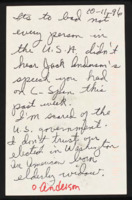 10-11-96
Its to bad not
every person in
the U.S.A. didn't
hear Jack Anderson's
speech you had
on C-Span this
past week.
I'm scared of the
U.S. government.
I don't trust our
election in Washington
an American born
elderly widow.
O Anderson